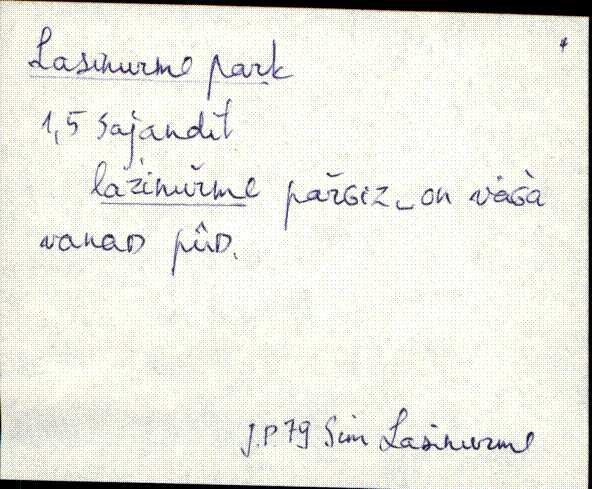 Lasinurme park
1,5 sajandit
lažinuřme pařGiz_on väGà
vanaD pûD.
J.P 79 Sim Lasinurme